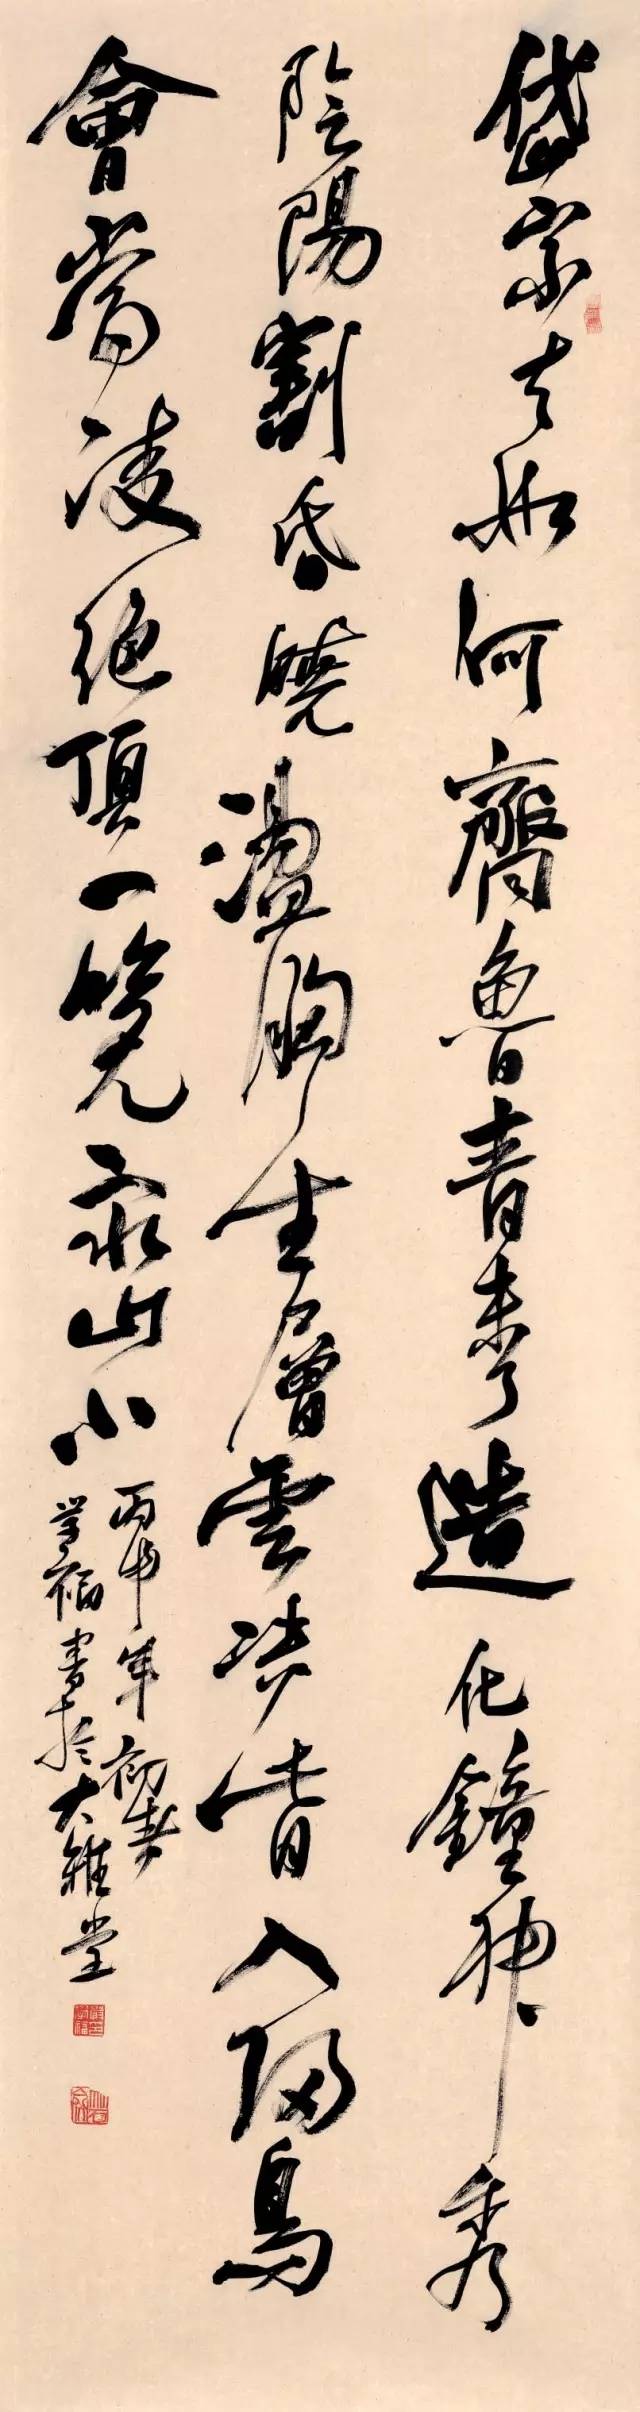 岱宗夫如何齊魯青未了造化鐘神秀
陰陽割昏曉盪胸生層雲決眥入歸鳥
會當凌絕頂一覽眾山小
丙申年初春
學福書於大雅堂